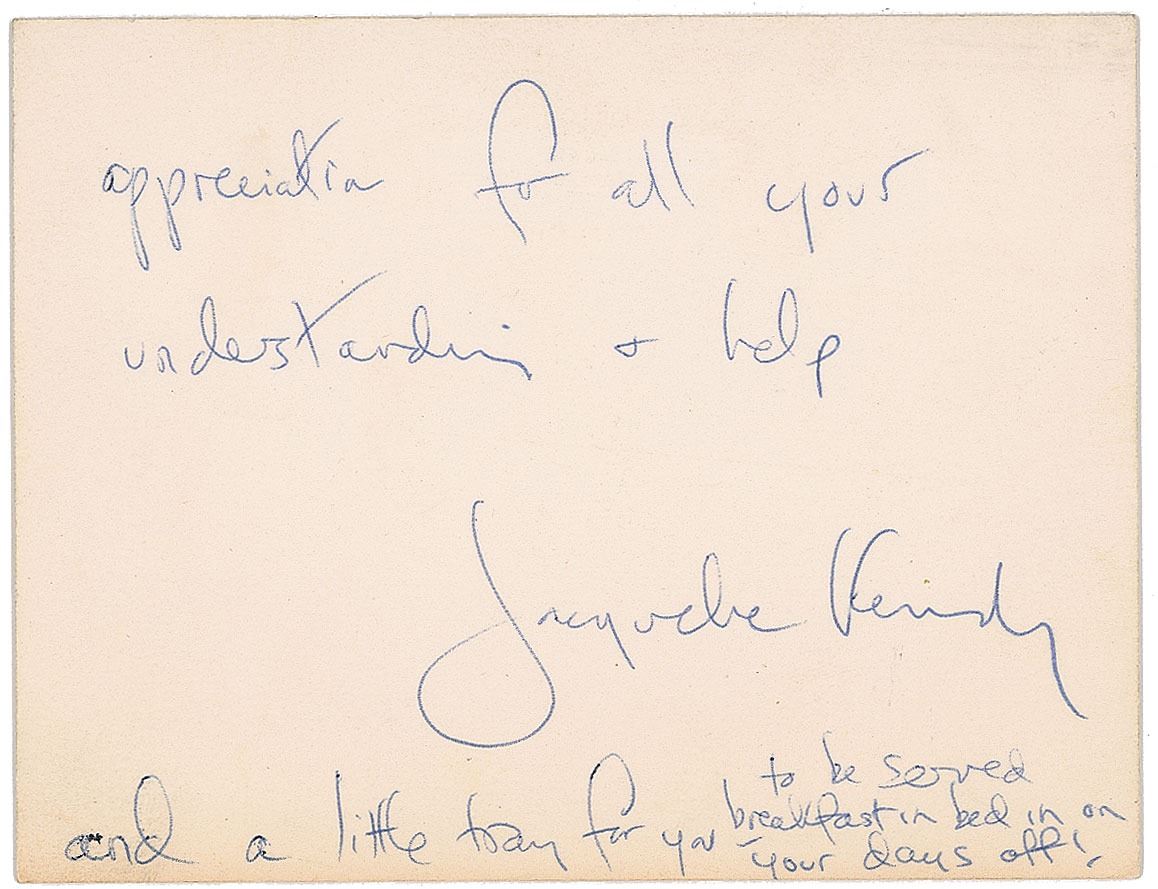 appreciation for all your
understanding + help
Jacqueline Kennedy
and a little tray for you to be served
breakfast in bed in on
your days off!